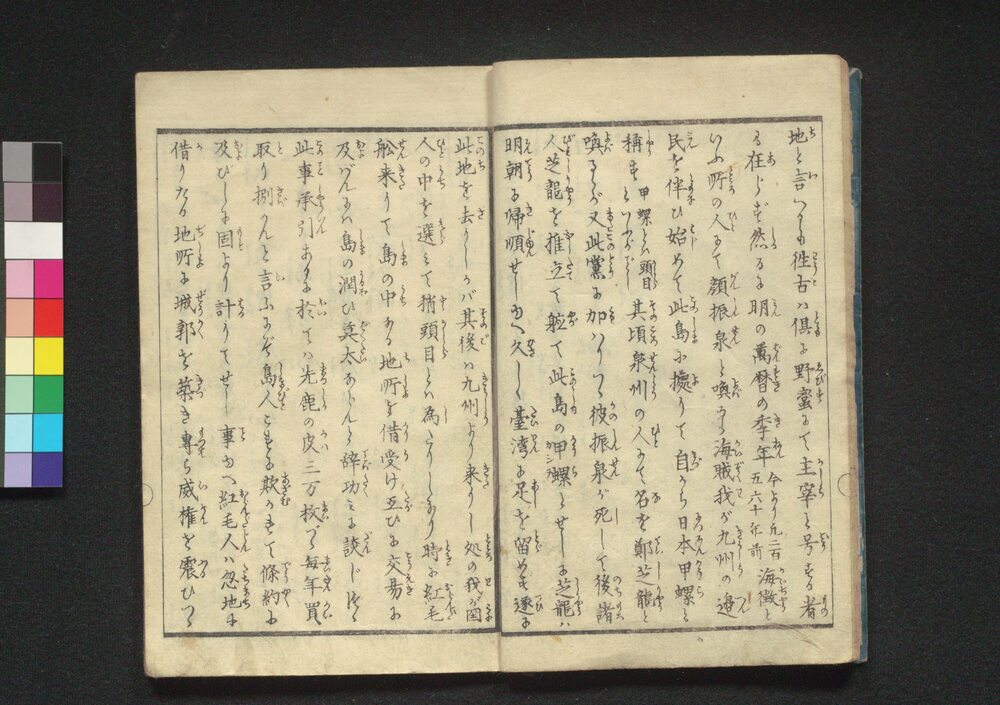 地と言へども往古ハ倶に野蛮にて主宰と号する者
る在らず然るに明の萬暦の季年今より凡二百五六十年前海徼と
いふ所の人にて顔振泉と喚ぶ海賊我が九州の邉
民を伴ひ始めて此島に據りて自から日本甲螺と
称す甲螺とハ頭目といふがごとし其頃泉州の人にて名を鄭芝龍と
喚るもの又此黨に加ハりつゝ彼振泉が死して後諸
人芝龍を推立て軈て此島の甲螺とせしに芝龍ハ
明朝に帰順せしゆへ久しく臺湾に足を留めず遂に
此地を去りしかバ其後ハ九州より来りし処の我が国
人の中を選ミて稍頭目とハ為たりしなり時に紅毛
舩来りて島の中なる地所を借受け互ひに交易に
及バんハ島の潤ひ莫大ならんと辞功ミに談じける
此事承引あるに於てハ先鹿の皮三万枚づゝ毎年買
取り捌かんと言ふにぞ島人ども欺かれて條約に
及びしに固より計りてせし事ゆへ紅毛人ハ忽地に
借りたる地所に城郭を築き専ら威権を震ひつゝ